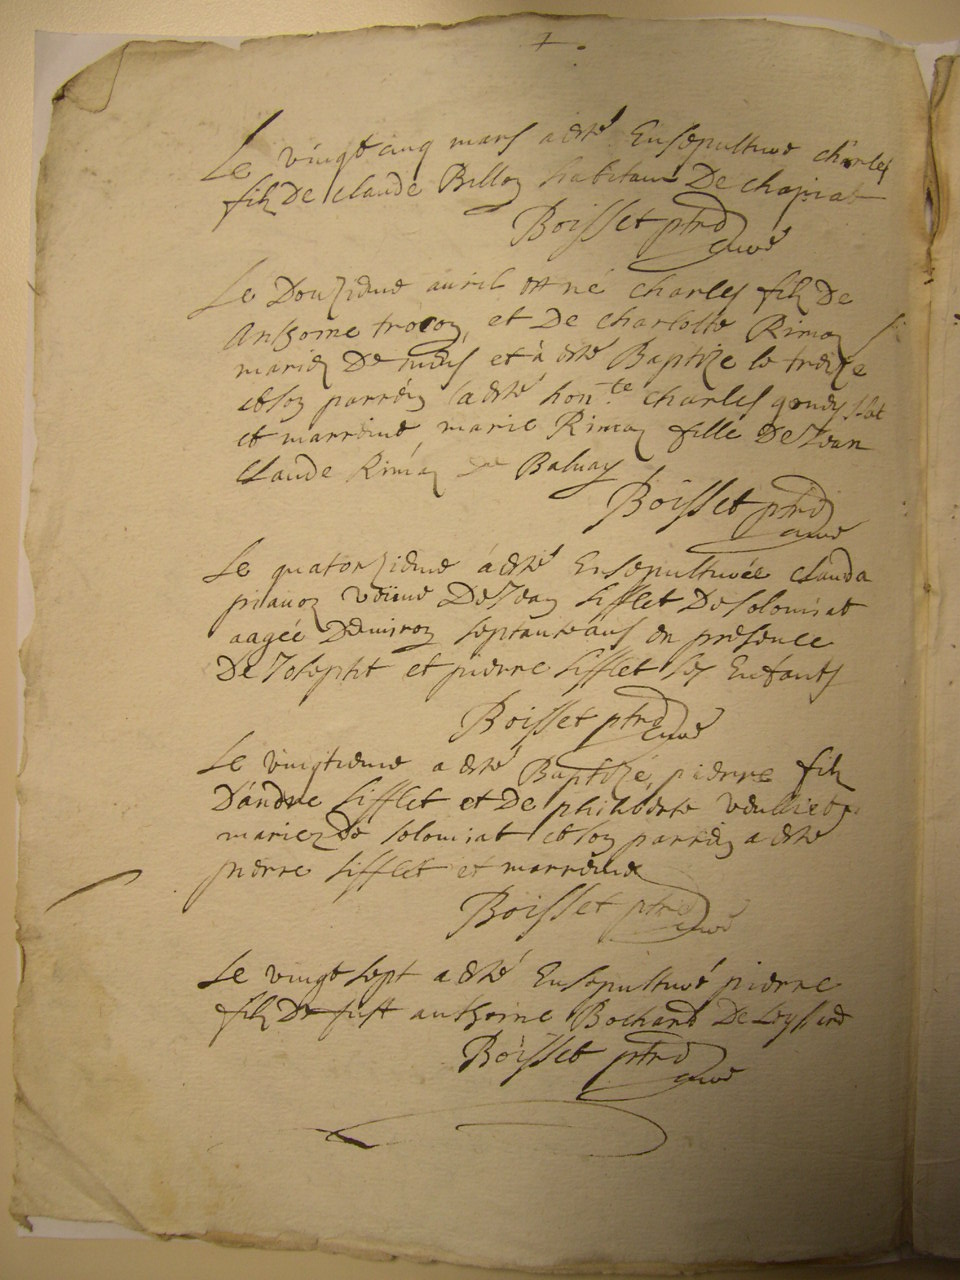 Le vingt cinq mars a esté Ensepulturé charles
filz De claude Billon habitant De chapiat
Boisset ptre
curé
Le Douzieme auril est né charles filz De
Anthoine trocon, et De charlotte Rimon
mariez De et à esté Baptize le treize
et son parrein a esté hon.te charles
et marreine marie Rimon fille De Jean
Claude Rimon De Baluay
Boisset ptre
curé
Le quatorzieme á esté Ensepulturée clauda
veuue De Jean Sifflet De solomiat
aagée D'enuiron septante ans en presence
De Joseptht et pierre Sifflet ses Enfants
Boisset ptre
curé
Le vingtieme a esté Baptizé, pierre filz
D'andre Sifflet et De philiberte
mariez De solomiat et son parrein a esté
pierre Sifflet et marreine
Boisset ptre
curé
Le vingt sept a esté Ensepulturé pierre
filz De fust anthoine Bochard De Leyssard
Boisset ptre
curé